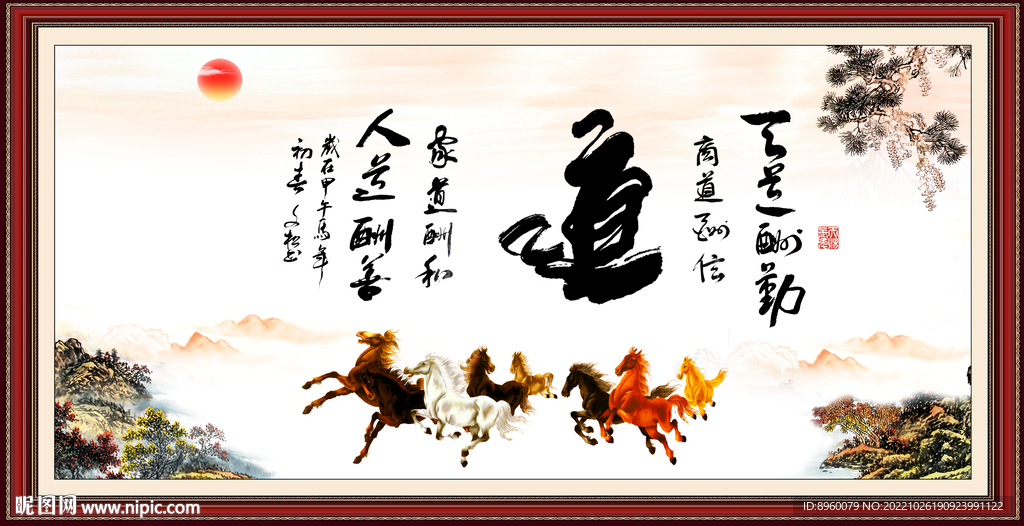 天道酬勤
商道酬信
道
家道酬和
人道酬善
歲在甲午馬年
初春
昵图网 www.nipic.com
ID:8960079 NO:20221026190923991122